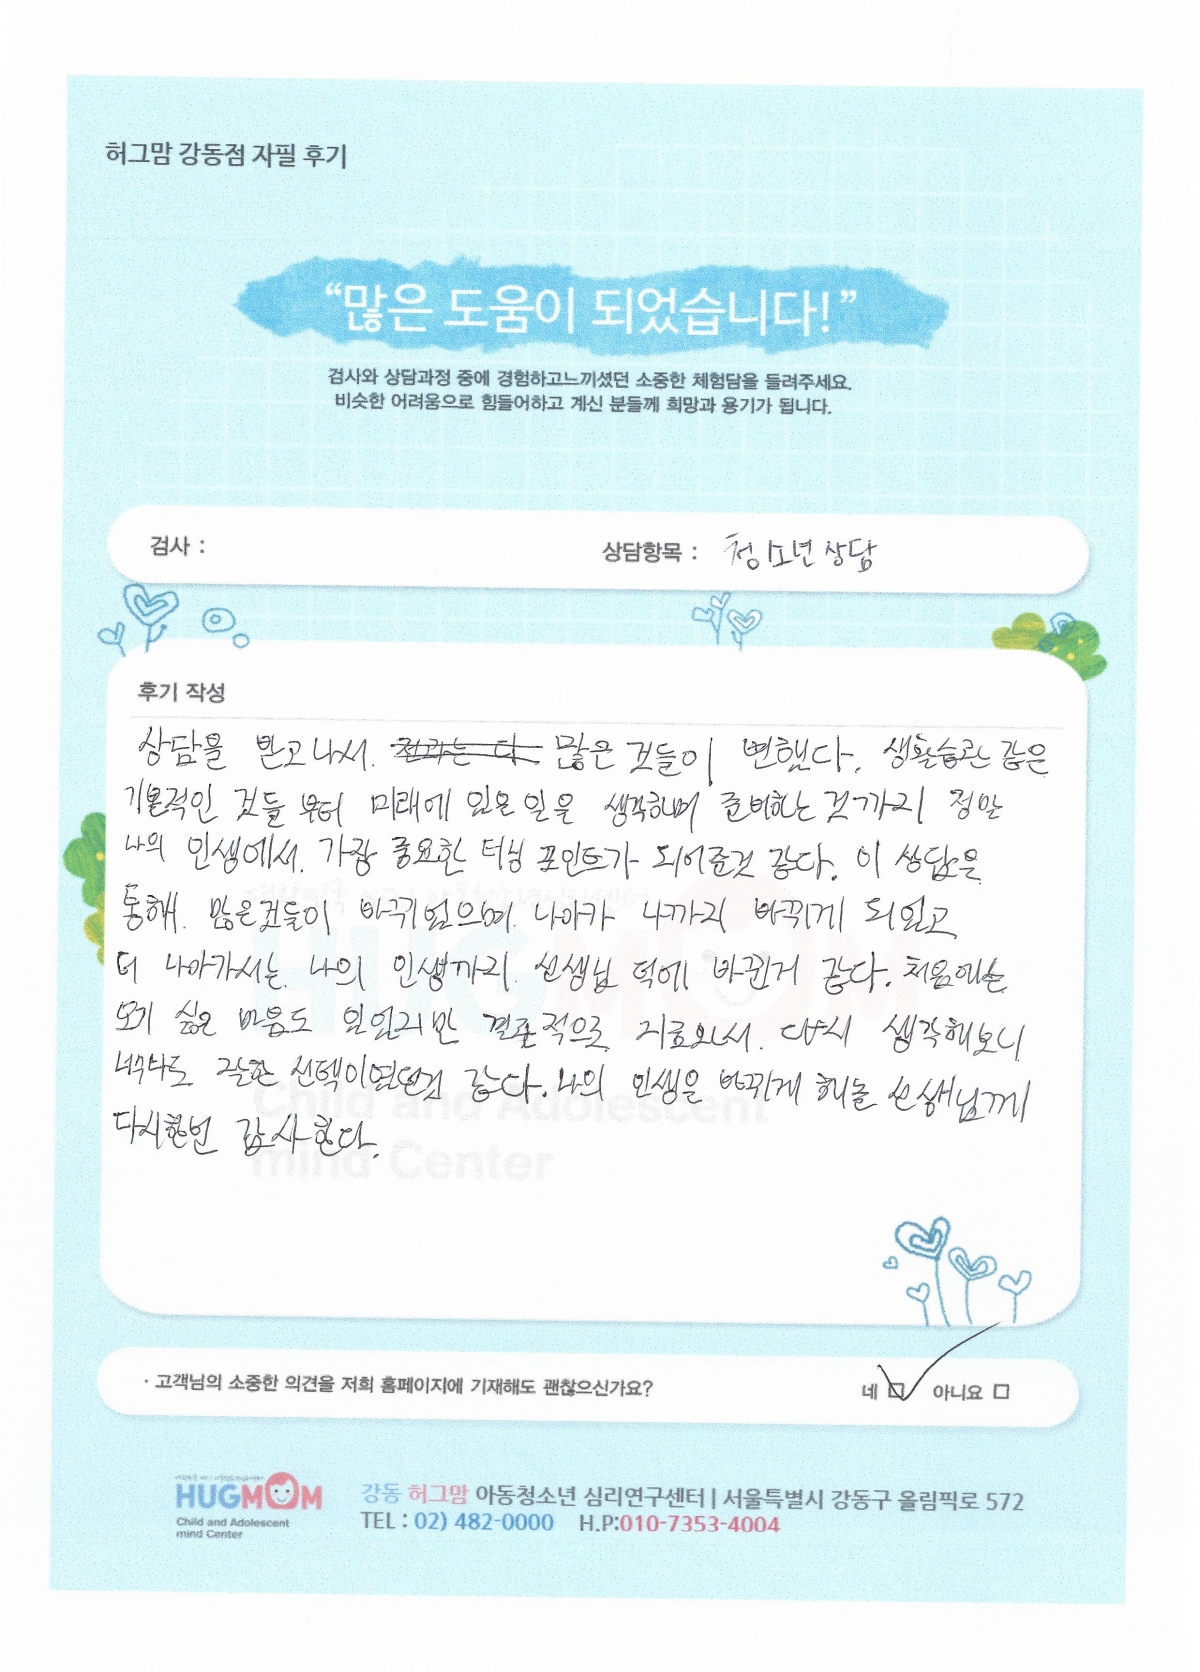 허그맘 강동점 자필 후기
“많은 도움이 되었습니다!”
검사와 상담과정 중에 경험하고느끼셨던 소중한 체험담을 들려주세요.
비슷한 어려움으로 힘들어하고 계신 분들께 희망과 용기가 됩니다.
검사 :
상담항목 : 청소년상담
후기 작성
상담을 받고나서. 많은 것들이 변했다. 생활습관 같은
기본적인 것들 부터 미래에 있을 일을 생각하며 준비하는 것까지 정말
나의 인생에서. 가장 중요한 터닝 포인트가 되어준것 같다. 이 상담을
통해. 많은것들이 바뀌었으며. 나아가 나까지 바뀌게 되었고
더 나아가서는. 나의 인생까지. 선생님 덕에 바뀐거 같다. 처음에는
오기 싫은 마음도 있었지만 결론적으로 다시 생각해보니
너무나도 잘한 선택이었던것 같다. 나의 인생을 바뀌게 해준 선생님께
다시한번 감사한다.
· 고객님의 소중한 의견을 저희 홈페이지에 기재해도 괜찮으신가요?
네 아니요
HUGMOM
Child and Adolescent
mind Center
강동 허그맘 아동청소년 심리연구센터 | 서울특별시 강동구 올림픽로 572
TEL : 02) 482-0000 H.P:010-7353-4004
Child and Adolescent
mind Center